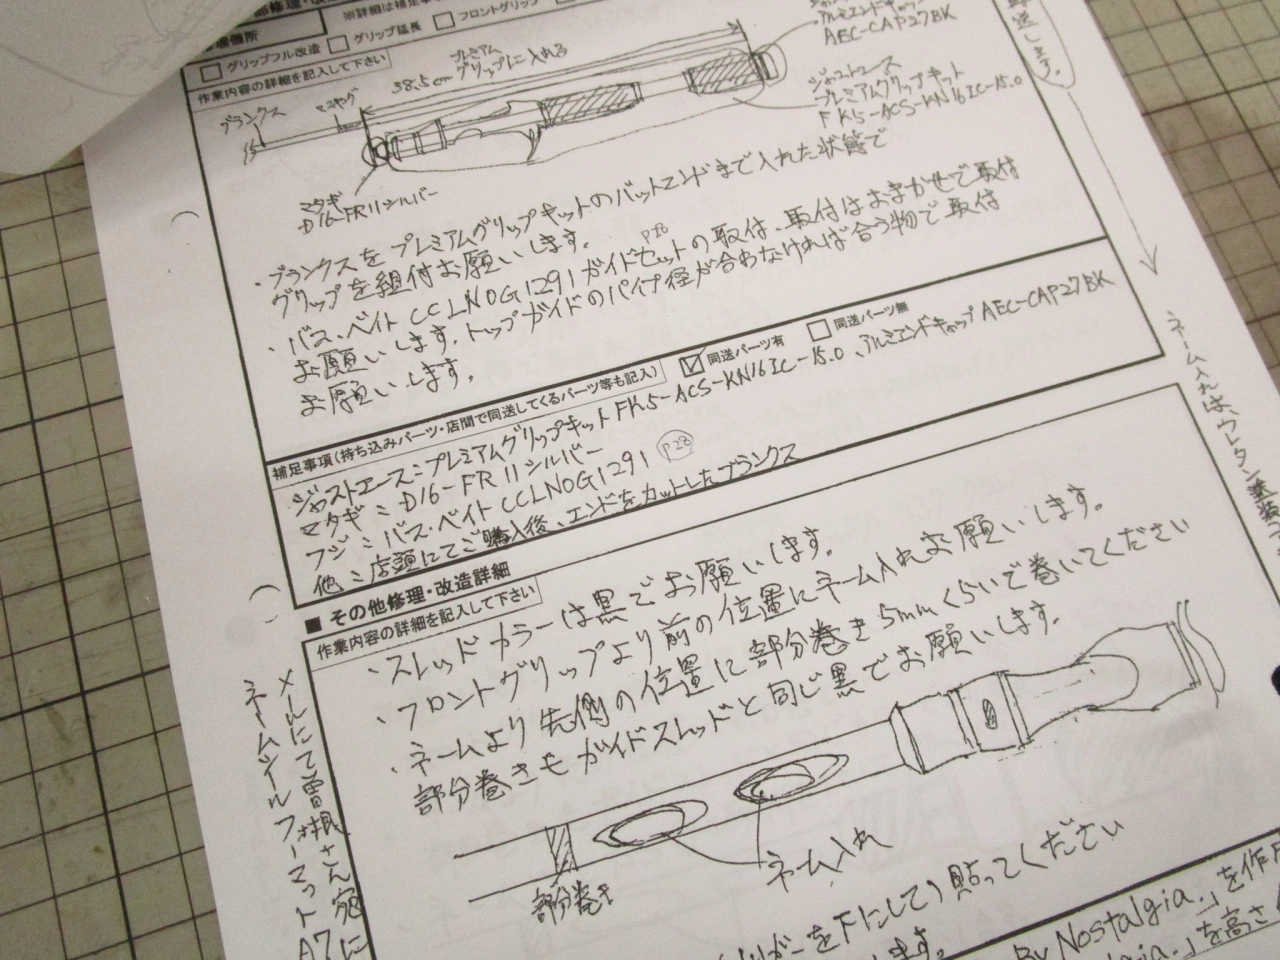 ※詳細は補足事
グリップフル改造 グリップ延長 フロントグリップ
作業内容の詳細を記入して下さい
プレミアム
グリップに入れる
38.5cm
ブランクス
アルミエンドキャ
AEC-CAP27BK
ジャストエース
プレミアムグリップキット
FK5-ACS-KN16IC-15.0
マタギ
D16-FR11シルバー
・ブランクスをプレミアムグリップキットのバットエンドまで入れた状態で
グリップを組付お願いします。
P28
・バス・ベイトCCLNOG1291ガイドセットの取付、取付はおまかせで取付
お願いします。トップガイドのパイプ径が合わなければ合う物で取付
お願いします。
補足事項(持ち込みパーツ・店間で同送してくるパーツ等も記入) 同送パーツ有 同送パーツ無
ジャストエース:プレミアムグリップキットFK5-ACS-KN16IC-15.0、アルミエンドキャップAEC-CAP27BK
マタギ:D16-FR11シルバー
フジ:バス・ベイトCCLNOG1291 P28
他:店頭にてご購入後、エンドをカットしたブランクス
■ その他修理・改造詳細
作業内容の詳細を記入して下さい
・スレッドカラーは黒でお願いします。
・フロントグリップより前の位置にネーム入れお願いします。
・ネームより先側の位置に部分巻き5mmくらいで巻いてください
部分巻きもガイドスレッドと同じ黒でお願いします。
部分巻き
ネーム入れ
を下にして)貼ってください
By Nostalgia.」を作成
gia.」を高さ
します。
送します。
ネーム入れは、ウレタン塗装
メールにて曽根さん宛
ネームシール フォーマット A7に